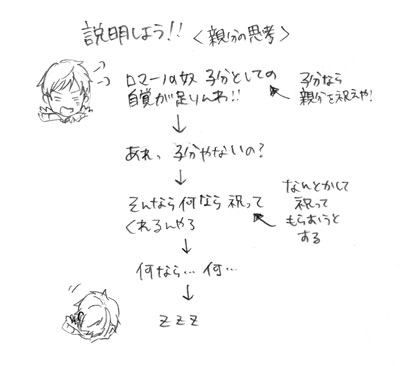 説明しよう!! <親分の思考>
ロマーノの奴 子分としての
自覚が足りんわ!!
子分なら
親分を祝えや!
あれ、子分やないの?
そんなら何なら 祝って
くれるんやろ
なんとかして
祝って
もらおうと
する
何なら… 何…
z z z